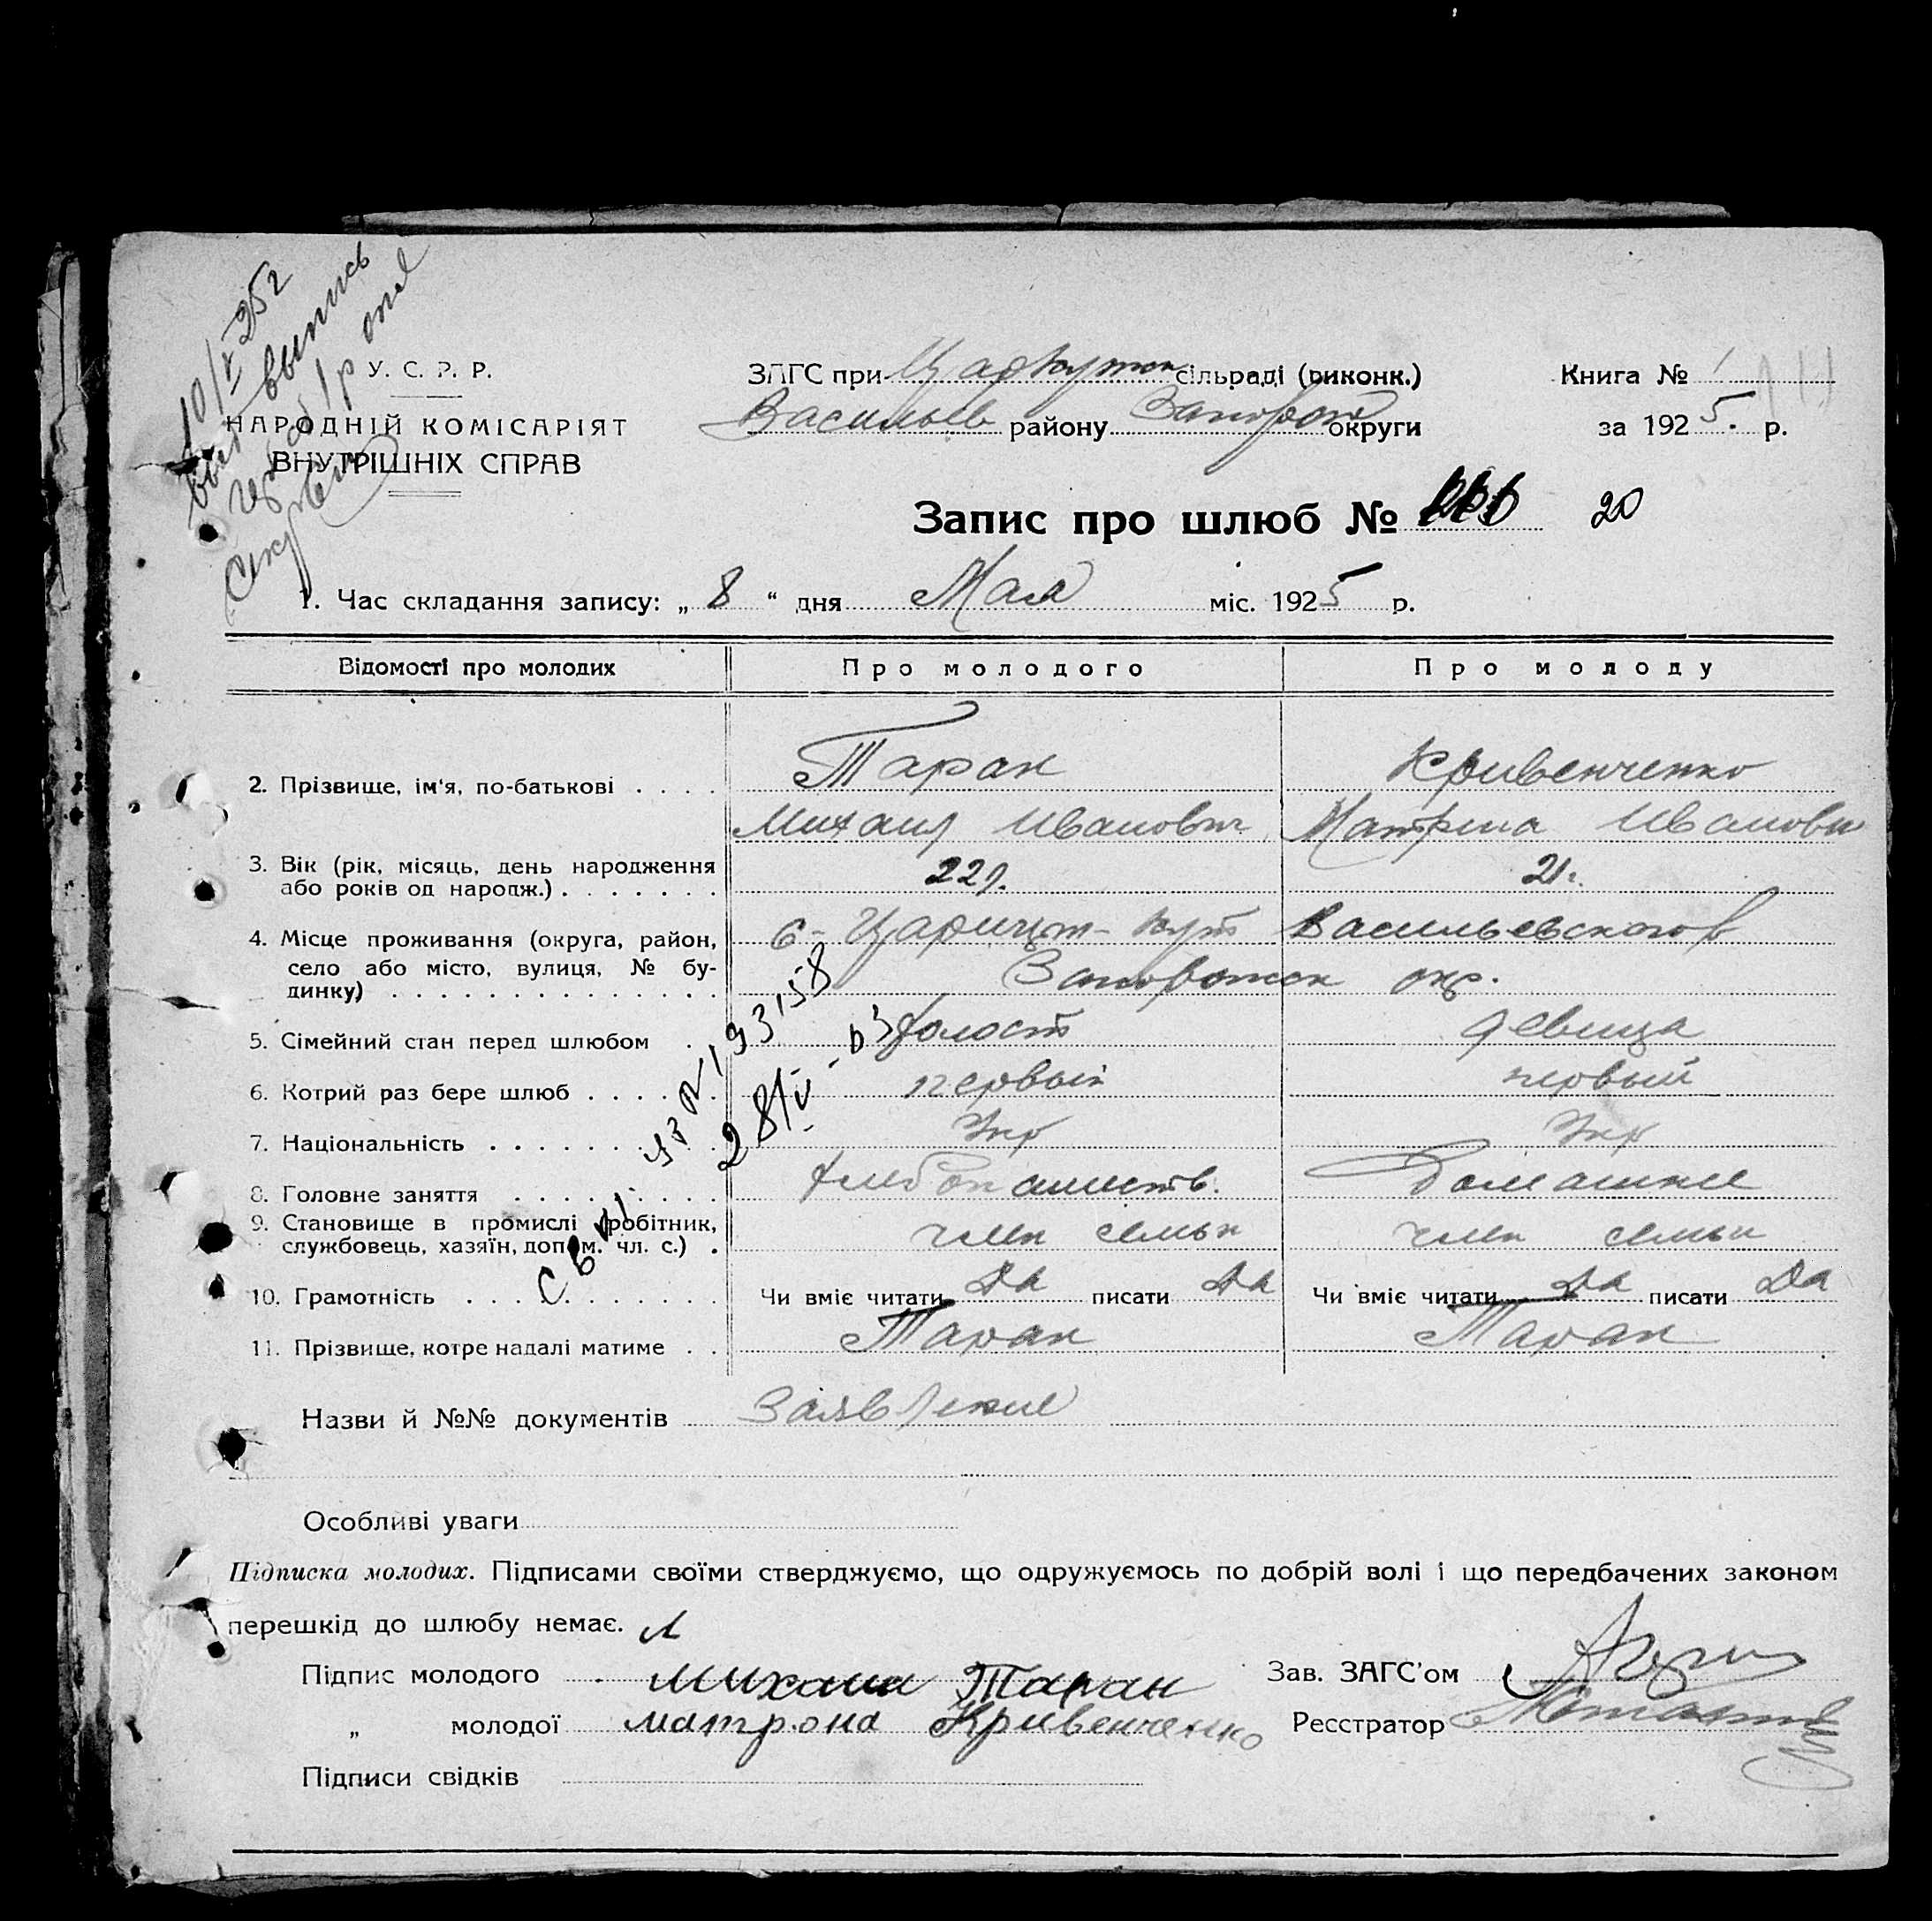 10/V 25 г
выпись
У. С. Р. Р.
НАРОДНІЙ КОМІСАРІЯТ
ВНУТРІШНІХ СПРАВ
ЗАГС при Царкутск сільраді (виконк.)
Васильев району Запорож округи
Книга № 1
за 1925. р.
Запис про шлюб № 20
1. Час складання запису: „ 8 “ дня Мая міс. 1925 р.
Відомості про молодих Про молодого Про молоду
2. Прізвище, ім'я, по-батькові . . . . Таран Кривенченко
Михаил Иванович Матрена Ивановн
3. Вік (рік, місяць, день народження
або років од народж.) . . . . . . . 22 г. 21 г.
4. Місце проживання (округа, район,
село або місто, вулиця, № бу-
динку) . . . . . . . . . . . . . .
с- Царицын- Кут Васильевского р
Запорожск окр.
5. Сімейний стан перед шлюбом . . холост девица
6. Котрий раз бере шлюб . . . . . . первый первый
7. Національність . . . . . . . . . Укр Укр
8. Головне заняття . . . . . . . . . хлебопашеств. Домашнее
9. Становище в промислі (робітник,
службовець, хазяїн, допом. чл. с.) . член семьи член семьи
10. Грамотність . . . . . . . . . . Чи вміє читати Да писати Да Чи вміє читати Да писати Да
11. Прізвище, котре надалі матиме . . Таран Таран
193158
28/IV - 63
Назви й №№ документів Заявление
Особливі уваги
Підписка молодих. Підписами своїми стверджуємо, що одружуємось по добрій волі і що передбачених законом
перешкід до шлюбу немає.
Підпис молодого . Михаил Таран Зав. ЗАГС'ом
„ молодої Матрона Кривенченко Реєстратор
Підписи свідків